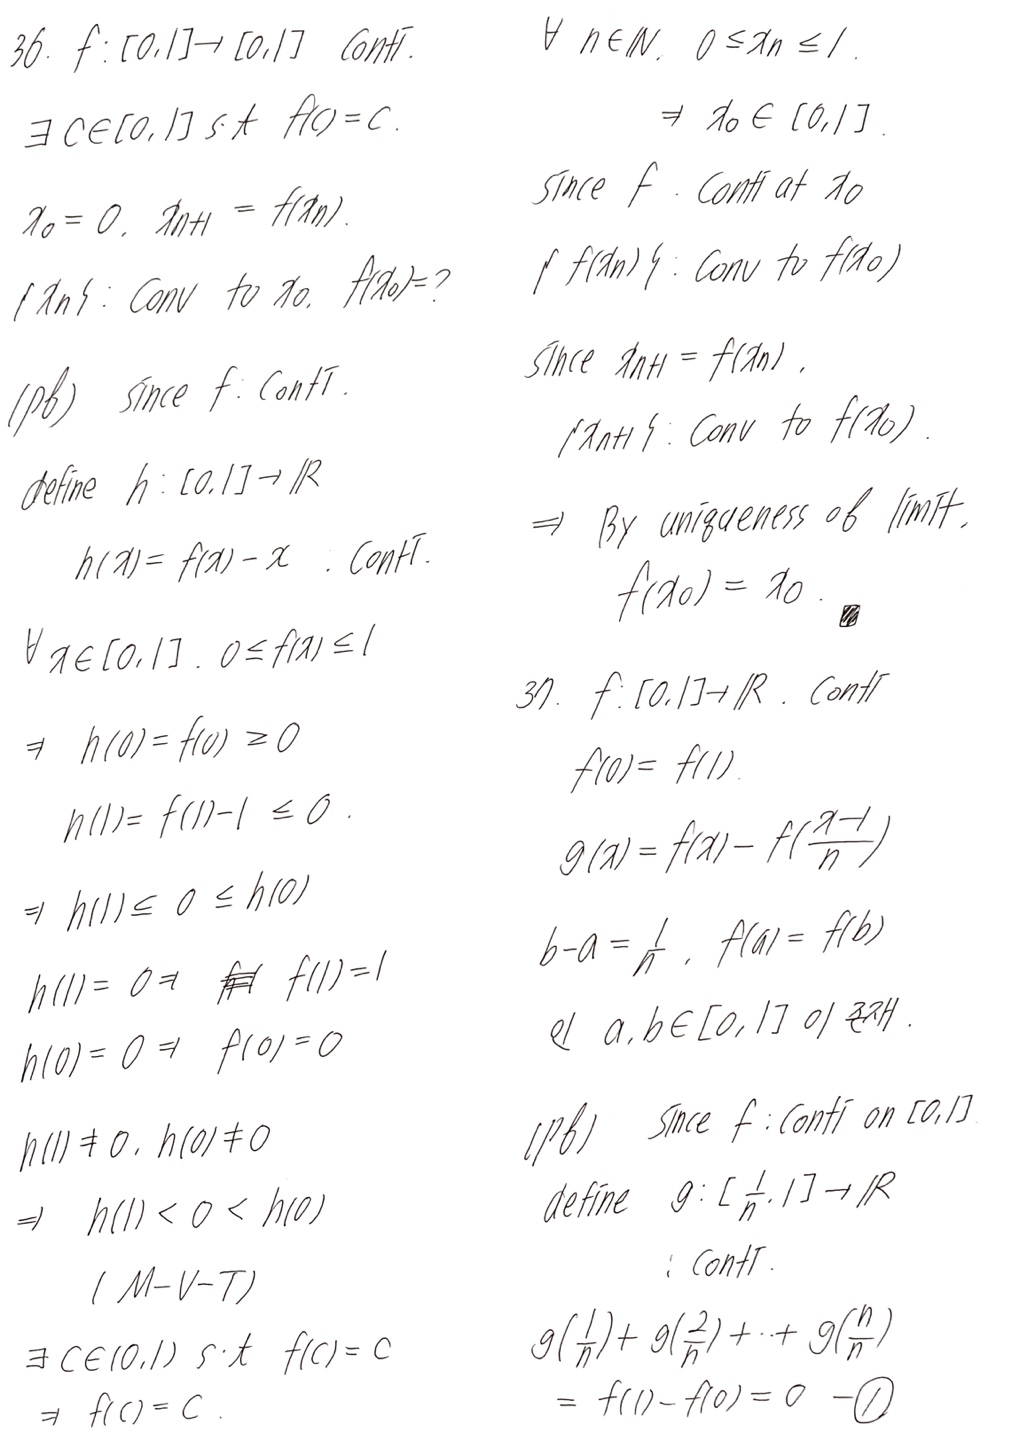 36. f: [0,1]→[0,1] conti.
∃ c∈[0,1] s.t f(c)=c.
x₀=0. xₙ₊₁ = f(xₙ).
{xₙ}: conv to x₀. f(x₀)=?
(pf) since f: conti.
define h: [0,1]→ℝ
h(x)= f(x)-x : conti.
∀x∈[0,1]. 0≤f(x)≤1
⇒ h(0)=f(0) ≥0
h(1)= f(1)-1 ≤0.
⇒ h(1)≤ 0 ≤h(0)
h(1)= 0⇒ f(1)=1
h(0)= 0⇒ f(0)=0
h(1)≠0. h(0)≠0
⇒ h(1)<0<h(0)
(M-V-T)
∃c∈(0,1) s.t f(c)=c
⇒ f(c)=c.
∀ n∈ℕ. 0≤xₙ≤1.
⇒ x₀∈[0,1].
since f. conti at x₀
{f(xₙ)}: conv to f(x₀)
since xₙ₊₁ = f(xₙ).
{xₙ₊₁}: conv to f(x₀).
⇒ By uniqueness of limit.
f(x₀)= x₀.
37. f: [0,1]→ℝ. conti
f(0)= f(1).
g(x)= f(x)- f((x-1)/n)
b-a = 1/n. f(a)= f(b)
인 a,b∈[0,1] 이 존재.
(pf) since f: conti on [0,1]
define g: [1/n,1]→ℝ
: conti.
g(1/n)+ g(2/n)+··+ g(n/n)
= f(1)-f(0)=0 -①